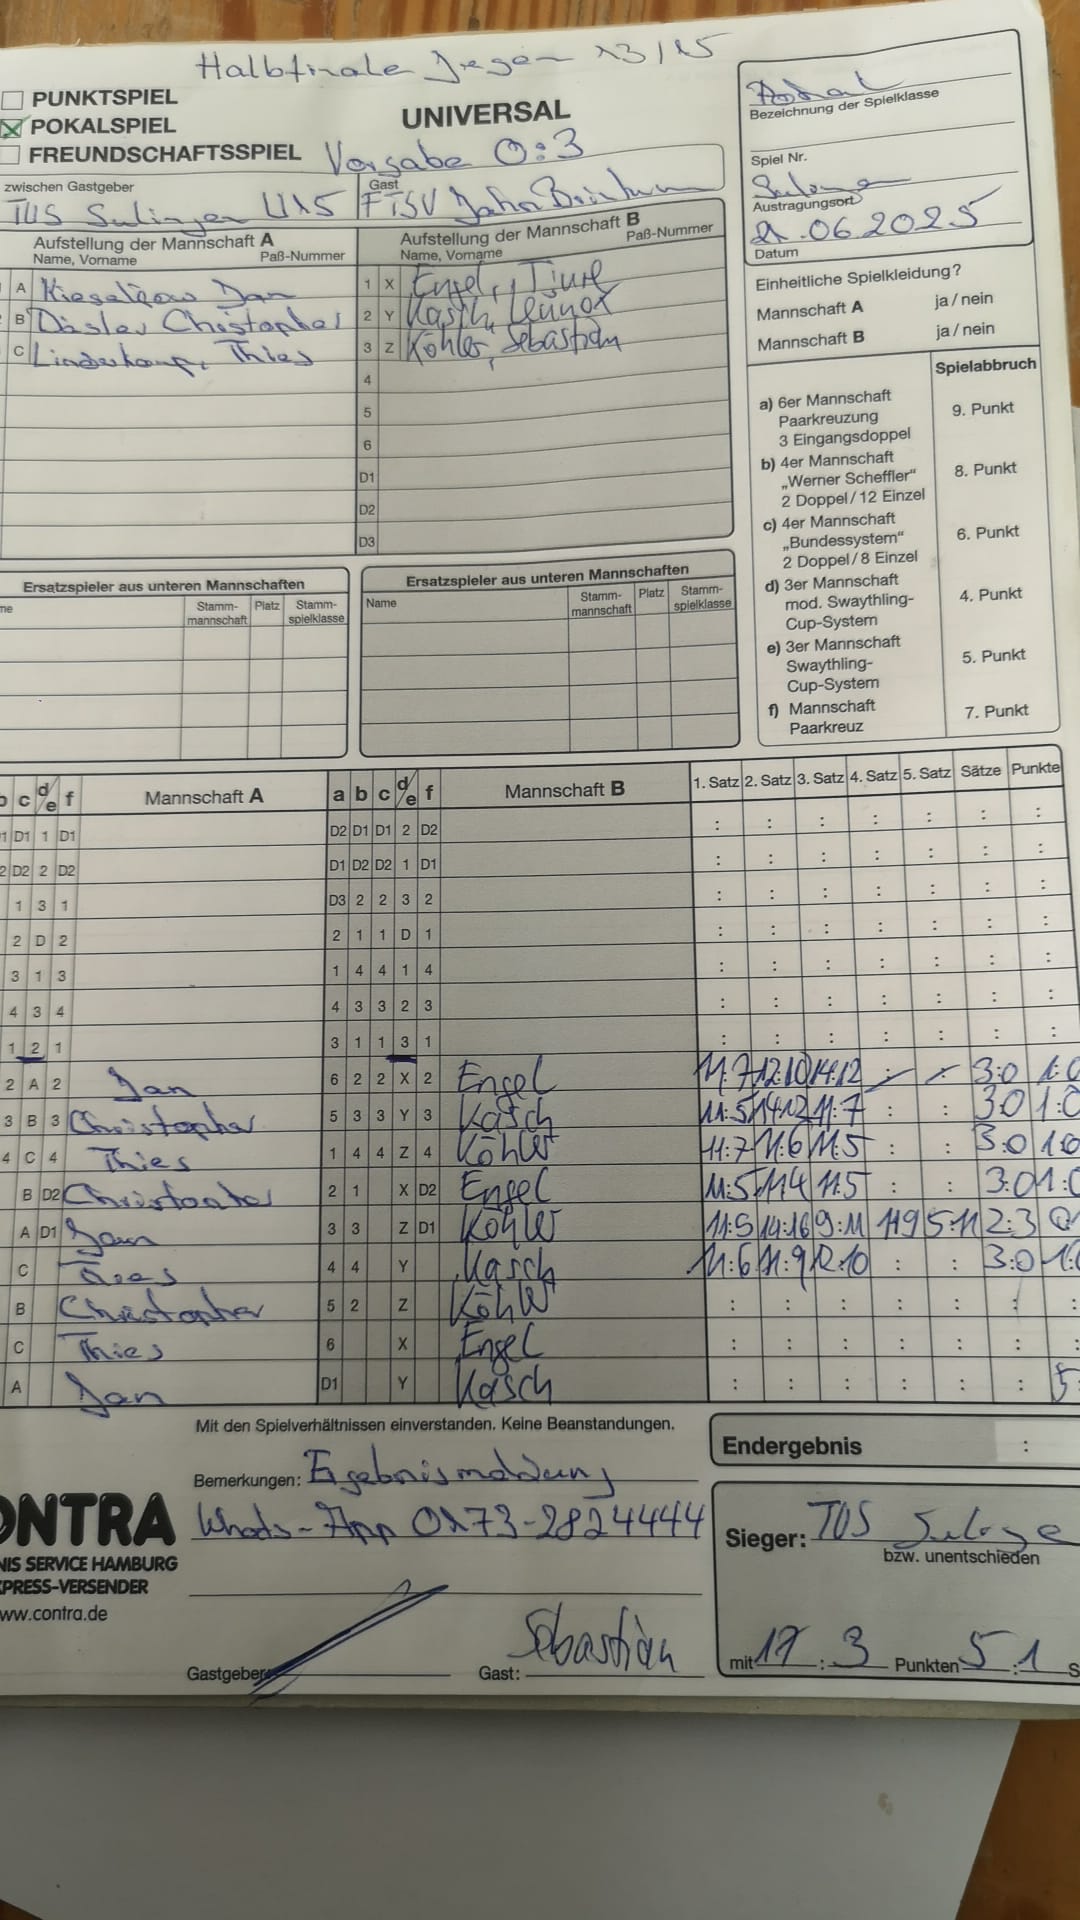 Halbfinale Jugend 13/15
PUNKTSPIEL
POKALSPIEL
FREUNDSCHAFTSSPIEL
UNIVERSAL
Vorgabe 0:3
Pokal
Bezeichnung der Spielklasse
Spiel Nr.
Sulingen
Austragungsort
21.06.2025
Datum
zwischen Gastgeber
TUS Sulingen U15
Gast
FTSV Jahn Brinkum
Aufstellung der Mannschaft A
Name, Vorname Paß-Nummer
Aufstellung der Mannschaft B
Name, Vorname Paß-Nummer
A Jan
B Däsler Christopher
C Lindenkamp, Thies
1 X Engel,
2 Y Kasch, Lennox
3 Z Köhler, Sebastian
4
5
6
D1
D2
D3
Einheitliche Spielkleidung?
Mannschaft A ja / nein
Mannschaft B ja / nein
Spielabbruch
a) 6er Mannschaft
Paarkreuzung
3 Eingangsdoppel
9. Punkt
b) 4er Mannschaft
„Werner Scheffler"
2 Doppel / 12 Einzel
8. Punkt
c) 4er Mannschaft
„Bundessystem"
2 Doppel / 8 Einzel
6. Punkt
d) 3er Mannschaft
mod. Swaythling-
Cup-System
4. Punkt
e) 3er Mannschaft
Swaythling-
Cup-System
5. Punkt
f) Mannschaft
Paarkreuz
7. Punkt
Ersatzspieler aus unteren Mannschaften
Stamm-mannschaft Platz Stamm-spielklasse
Ersatzspieler aus unteren Mannschaften
Name Stamm-mannschaft Platz Stamm-spielklasse
c d/e f Mannschaft A a b c d/e f Mannschaft B 1. Satz 2. Satz 3. Satz 4. Satz 5. Satz Sätze Punkte
1 D1 1 D1 D2 D1 D1 2 D2 : : : : : : :
2 D2 2 D2 D1 D2 D2 1 D1 : : : : : : :
1 3 1 D3 2 2 3 2 : : : : : : :
2 D 2 2 1 1 D 1 : : : : : : :
3 1 3 1 4 4 1 4 : : : : : : :
4 3 4 4 3 3 2 3 : : : : : : :
1 2 1 3 1 1 3 1 : : : : : : :
2 A 2 Jan 6 2 2 X 2 Engel 11:7 12:10 14:12 : : 3:0 1:0
3 B 3 Christopher 5 3 3 Y 3 Kasch 11:5 14:12 11:7 : : 3:0 1:0
4 C 4 Thies 1 4 4 Z 4 Köhler 11:7 11:6 11:5 : : 3:0 1:0
B D2 Christopher 2 1 X D2 Engel 11:5 11:4 11:5 : : 3:0 1:0
A D1 Jan 3 3 Z D1 Köhler 11:5 14:16 9:11 11:9 5:11 2:3 0
C Thies 4 4 Y Kasch 11:6 11:9 12:10 : : 3:0 1:0
B Christopher 5 2 Z Köhler : : : : : :
C Thies 6 X Engel : : : : : : :
A Jan D1 Y Kasch : : : : : : 5
Mit den Spielverhältnissen einverstanden. Keine Beanstandungen.
Bemerkungen: Ergebnismeldung
Whats-App 0173-2824444
Endergebnis :
ONTRA
NIS SERVICE HAMBURG
PRESS-VERSENDER
ww.contra.de
Sieger: TUS Sulingen
bzw. unentschieden
Gastgeber:
Gast: Sebastian
mit 17 : 3 Punkten 5 : 1 S